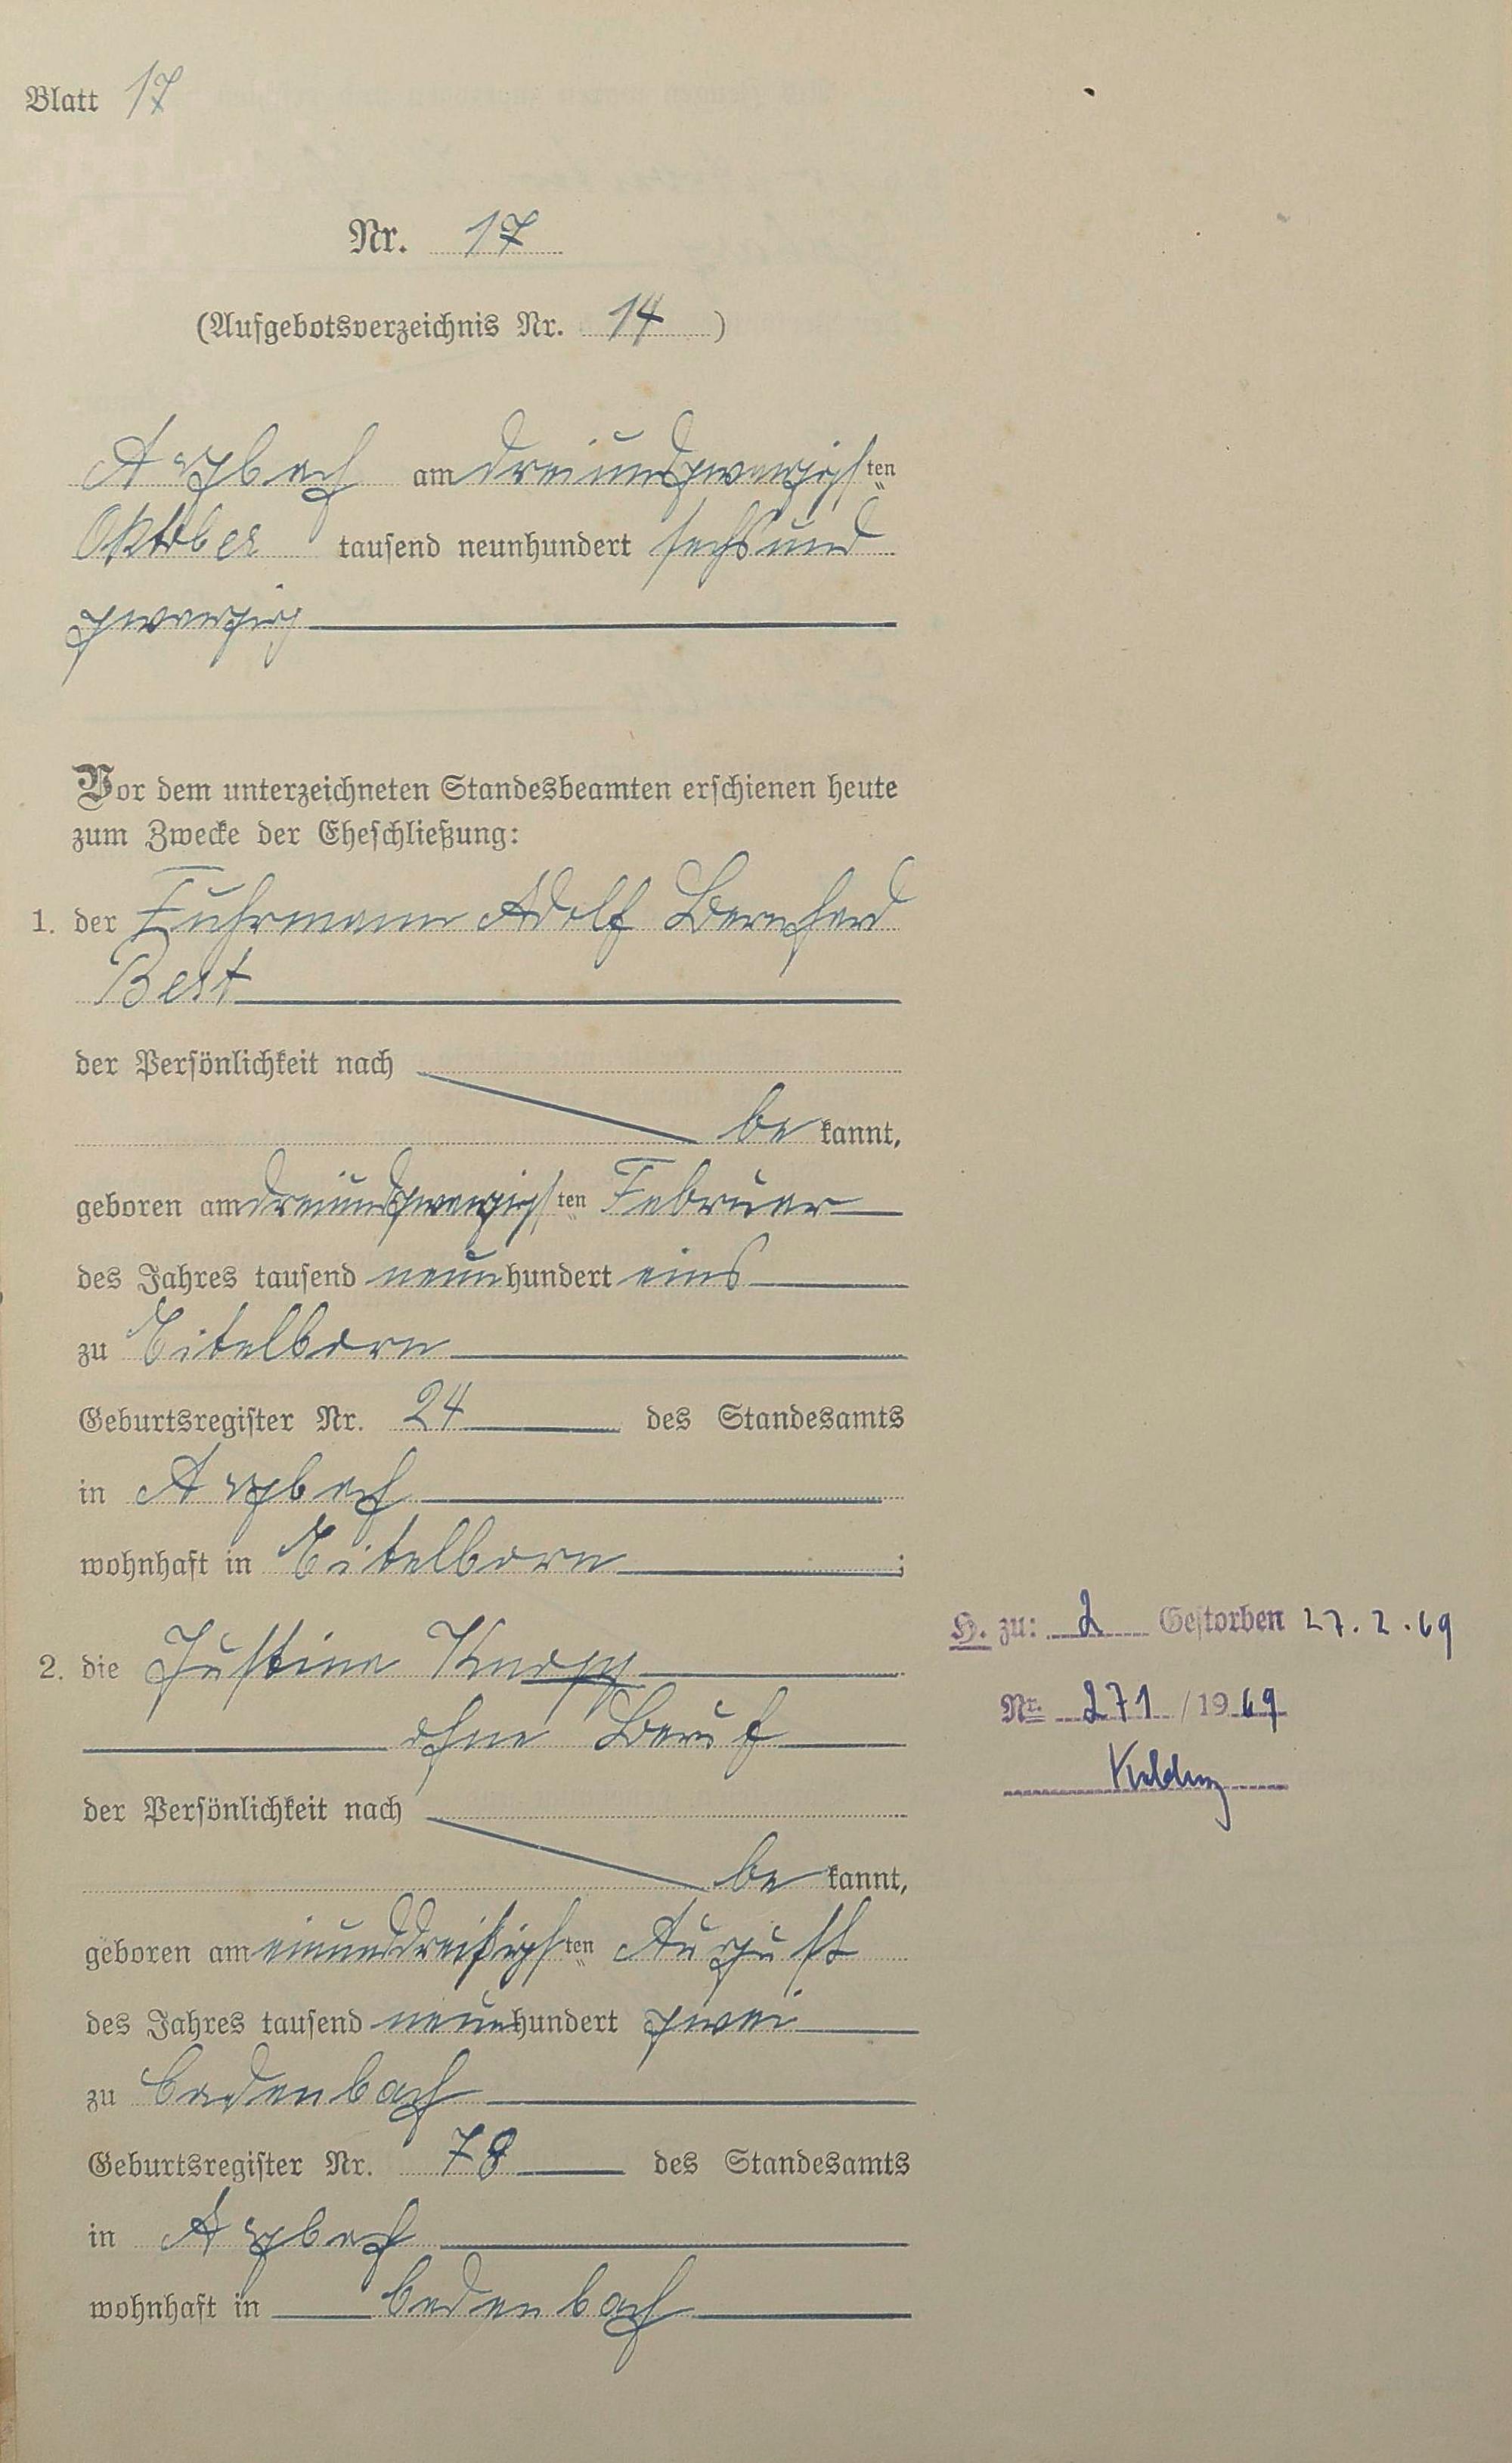 Blatt 17
Nr. 17
(Aufgebotsverzeichnis Nr. 14)
Arzbach am dreiundzwanzigsten
Oktober tausend neunhundert sechsund
zwanzig
Vor dem unterzeichneten Standesbeamten erschienen heute
zum Zwecke der Eheschließung:
1. der Fuhrmann Adolf Bernhard
Best
der Persönlichkeit nach
bekannt,
geboren am dreiundzwanzigsten Februar
des Jahres tausend neunhundert eins
zu Eitelborn
Geburtsregister Nr. 24 des Standesamts
in Arzbach
wohnhaft in Eitelborn;
2. die Justine Knopp
ohne Beruf
der Persönlichkeit nach
bekannt,
geboren am einunddreißigsten August
des Jahres tausend neunhundert zwei
zu Cadenbach
Geburtsregister Nr. 78 des Standesamts
in Arzbach
wohnhaft in Cadenbach
H. zu: 2 Gestorben 27.2.69
Nr. 271/1969